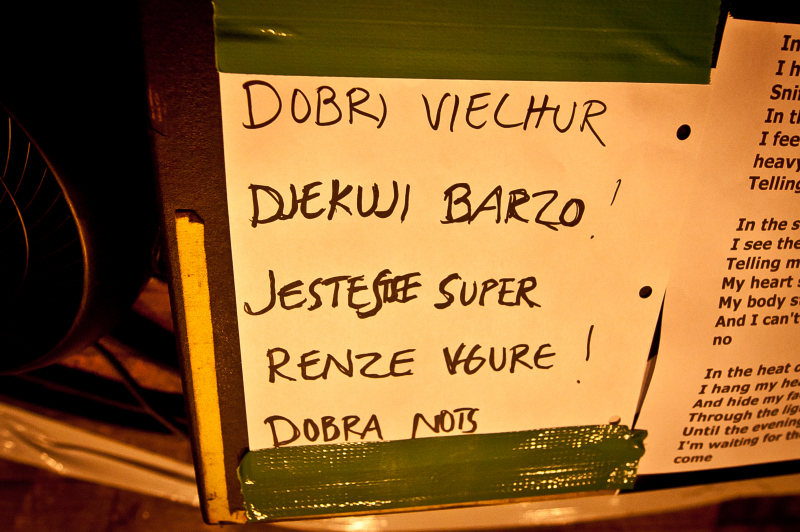 DOBRJ VIECHUR
DJEKUJI BARZO!
JESTEŚĆE SUPER
RENZE VGURE!
DOBRA NOTS
In
I h
Snif
In th
I fee
heavy
Telling
In the s
I see the
Telling m
My heart s
My body s
And I can't
no
In the heat o
I hang my hea
And hide my fa
Through the lig
Until the evening
I'm waiting for th
come